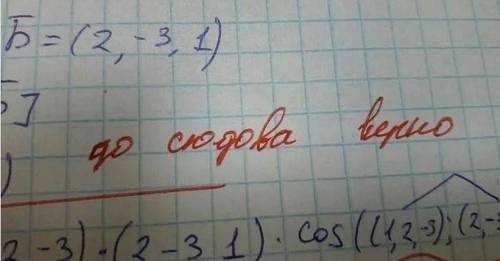 Б = (2, -3, 1)
Б]
до сюдова верно
)
2 -3) · (2 -3 1) · cos((1,2,-3);(2,-3